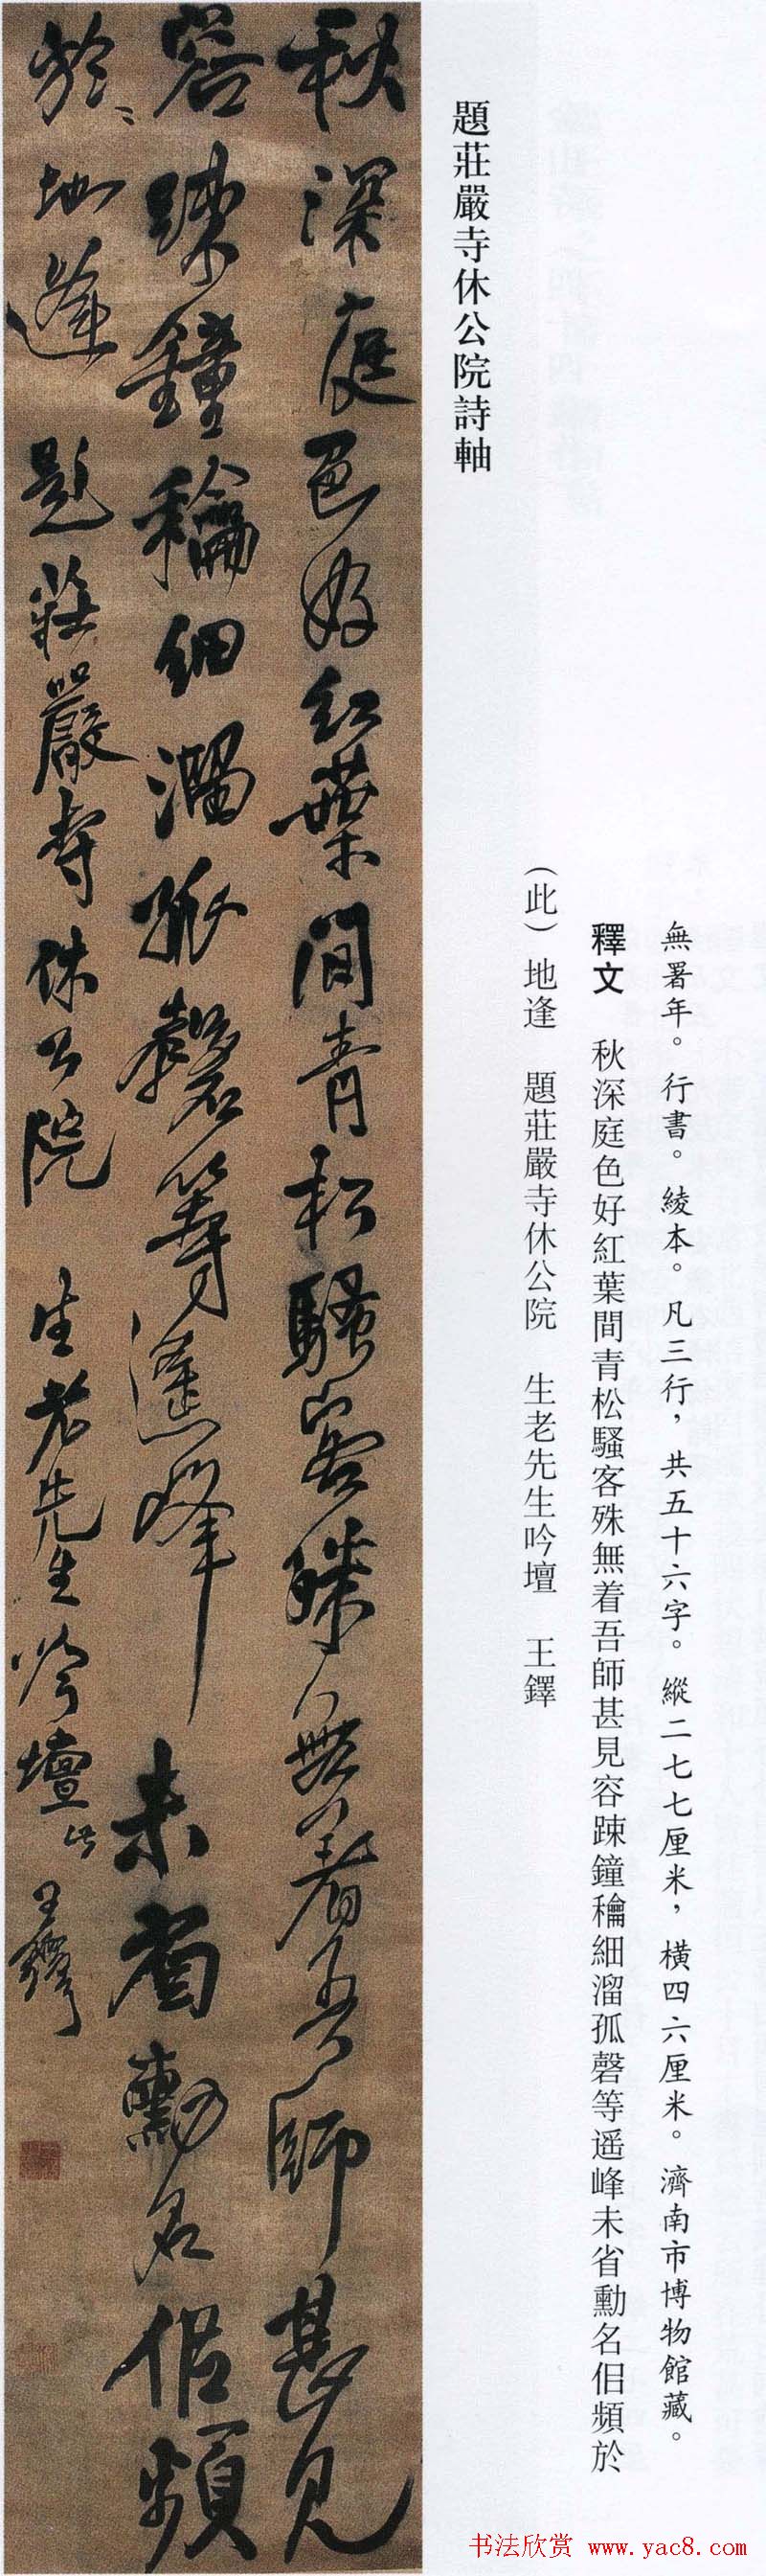 題莊嚴寺休公院詩軸
無署年。行書。綾本。凡三行，共五十六字。縱二七七厘米，橫四六厘米。濟南市博物館藏。
釋文　秋深庭色好紅葉間青松騷客殊無着吾師甚見容踈鐘穐細溜孤磬等遥峰未省勳名佀頻於
（此）地逢　題莊嚴寺休公院　生老先生吟壇　王鐸
秋深庭色好紅葉間青松騷客殊無着吾師甚見
容踈鐘穐細溜孤磬等遥峰未省勳名佀頻
於地逢　題莊嚴寺休公院　生老先生吟壇　此　王鐸
书法欣赏 www.yac8.com